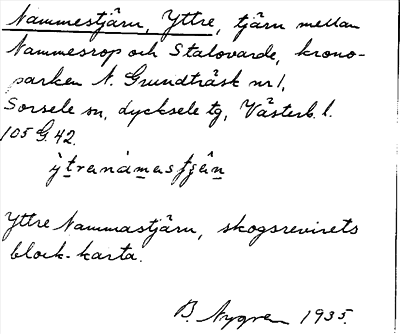 Nammestjärn, Yttre, tjärn mellan
Nammesrop och Stalovarde, krono-
parken N. Grundträsk nr 1,
Sorsele sn, Lycksele tg, Västerb. l.
105 G. 42.
ỳtranàmastjä̂n
Yttre Nammastjärn, skogsrevirets
block-karta.
B. Nygren 1935.